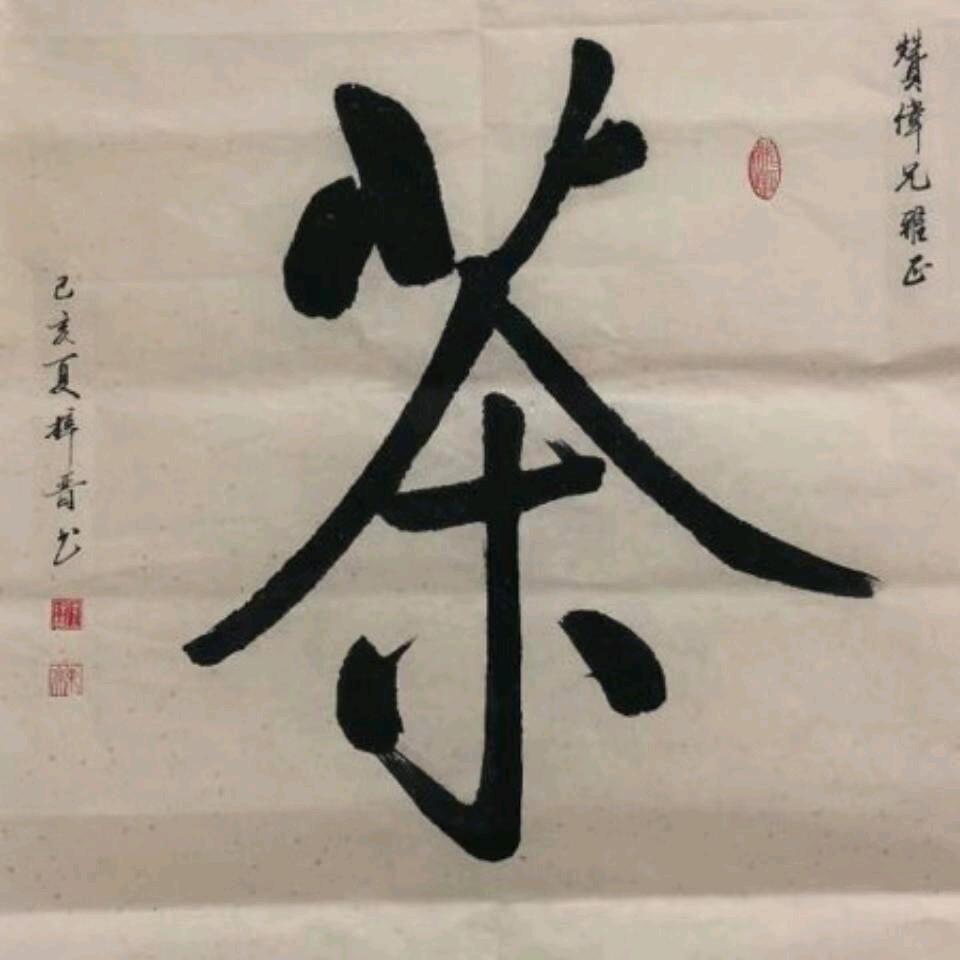 贊偉兄雅正
茶
己亥夏梓晋书